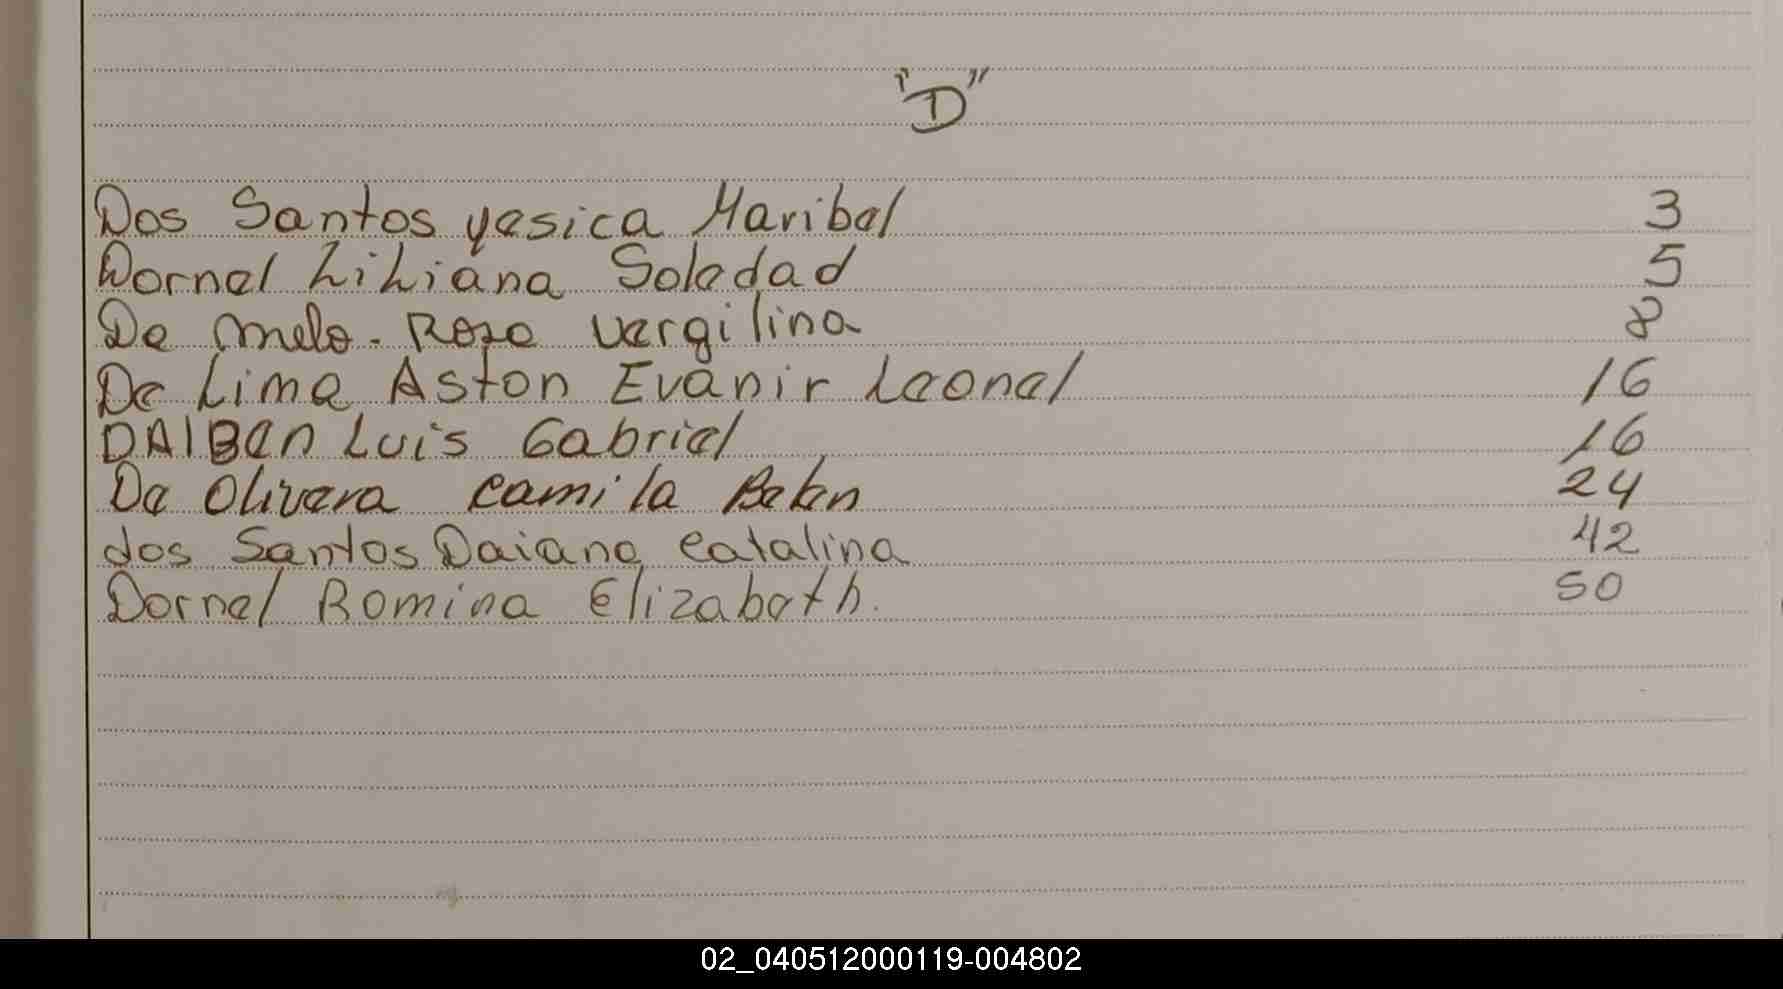 "D"
Dos Santos yesica Maribel 3
Dornel Liliana Soledad 5
De melo. Rosa vergilina 8
De Lima Aston Evanir Leonel 16
DAIBEN Luis Gabriel 16
De Olivera camila Belen 24
dos Santos Daiana catalina 42
Dornel Romina Elizabeth. 50
02_040512000119-004802